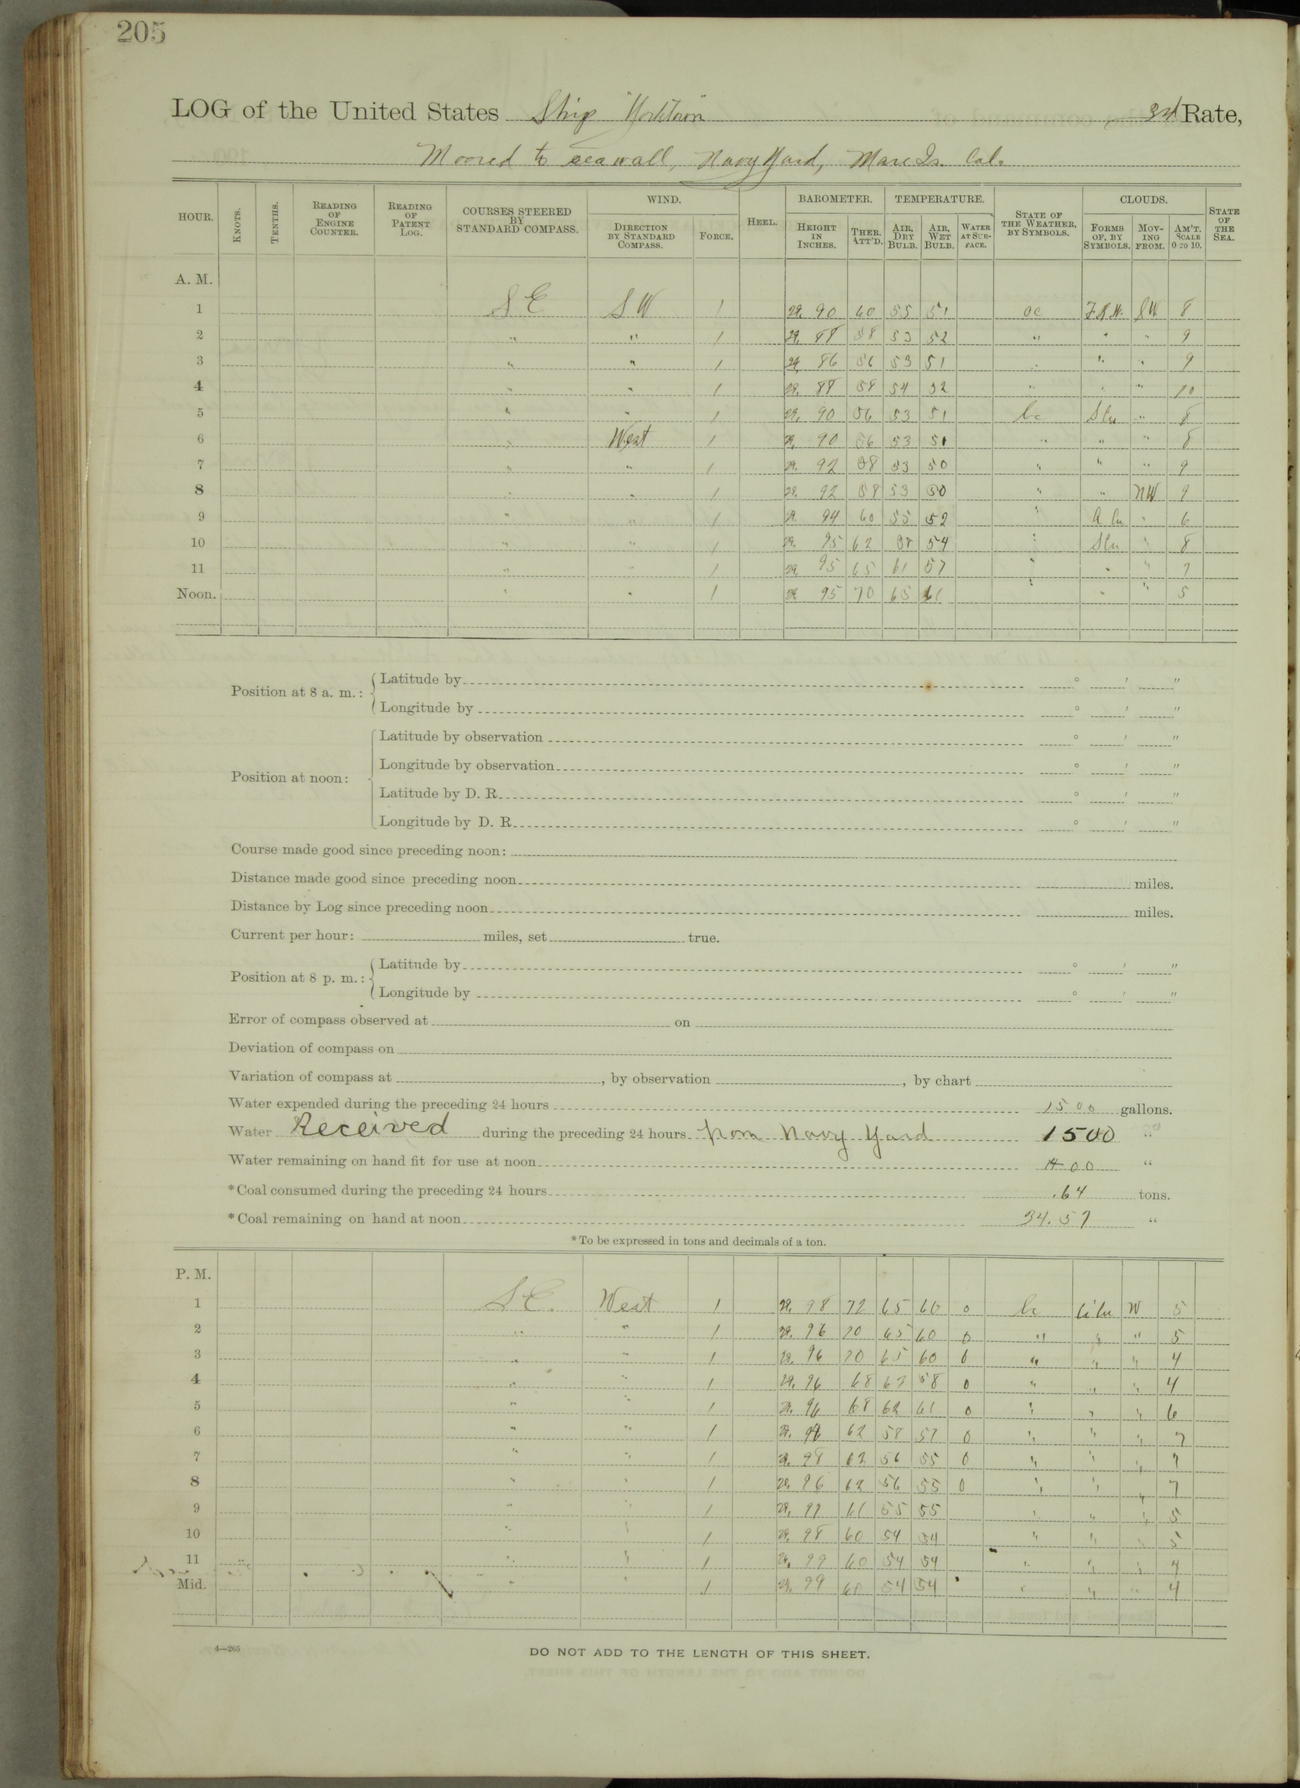 205
LOG of the United States Ship "Yorktown" 3rd Rate,
Moored to seawall, Navy Yard, Mare Is. Cal.
HOUR. KNOTS. TENTHS. READING OF ENGINE COUNTER. READING OF PATENT LOG. COURSES STEERED BY STANDARD COMPASS. WIND. DIRECTION BY STANDARD COMPASS. FORCE. HEEL. BAROMETER. HEIGHT IN INCHES. THER. ATT'D. TEMPERATURE. AIR, DRY BULB. AIR, WET BULB. WATER AT SURFACE. STATE OF THE WEATHER, BY SYMBOLS. CLOUDS. FORMS OF, BY SYMBOLS. MOVING FROM. AM'T. SCALE 0 TO 10. STATE OF THE SEA.
A. M.
1 S E S W 1 29. 90 60 55 51 oc SW 8
2 " " 1 29. 88 58 53 52 " " " 9
3 " " 1 29. 86 56 53 51 " " " 9
4 " " 1 29. 88 58 54 52 " " " 10
5 " " 1 29. 90 56 53 51 bc S Cu " 8
6 " West 1 29. 90 56 53 51 " " " 8
7 " " 1 29. 92 58 53 50 " " " 9
8 " " 1 29. 92 58 53 50 " " NW 9
9 " " 1 29. 94 60 55 52 " A Cu " 6
10 " " 1 29. 95 62 58 54 " S Cu " 8
11 " " 1 29. 95 65 61 57 " " " 7
Noon. " " 1 29. 95 70 65 61 " " " 5
Position at 8 a. m.: Latitude by ° ' "
Longitude by ° ' "
Position at noon: Latitude by observation ° ' "
Longitude by observation ° ' "
Latitude by D. R. ° ' "
Longitude by D. R. ° ' "
Course made good since preceding noon:
Distance made good since preceding noon miles.
Distance by Log since preceding noon miles.
Current per hour: miles, set true.
Position at 8 p. m.: Latitude by ° ' "
Longitude by ° ' "
Error of compass observed at on
Deviation of compass on
Variation of compass at , by observation , by chart
Water expended during the preceding 24 hours 1500 gallons.
Water Received during the preceding 24 hours from Navy Yard 1500 "
Water remaining on hand fit for use at noon "
*Coal consumed during the preceding 24 hours .64 tons.
*Coal remaining on hand at noon 34.57 "
*To be expressed in tons and decimals of a ton.
P. M.
1 S E. West 1 29. 98 72 65 60 0 bc Ci Cu W 5
2 " " 1 29. 96 70 65 60 0 " " " 5
3 " " 1 29. 96 70 65 60 0 " " " 4
4 " " 1 29. 96 68 58 0 " " " 4
5 " " 1 29. 96 68 62 61 0 " " " 6
6 " " 1 29. 62 58 57 0 " " " 7
7 " " 1 29. 98 62 56 55 0 " " " 7
8 " " 1 29. 96 62 56 55 0 " " " 7
9 " " 1 29. 61 55 55 " " " 5
10 " " 1 29. 98 60 54 54 " " " 5
11 " " 1 29. 99 60 54 54 " " " 4
Mid. " " 1 29. 99 60 54 54 " " " 4
4—265
DO NOT ADD TO THE LENGTH OF THIS SHEET.